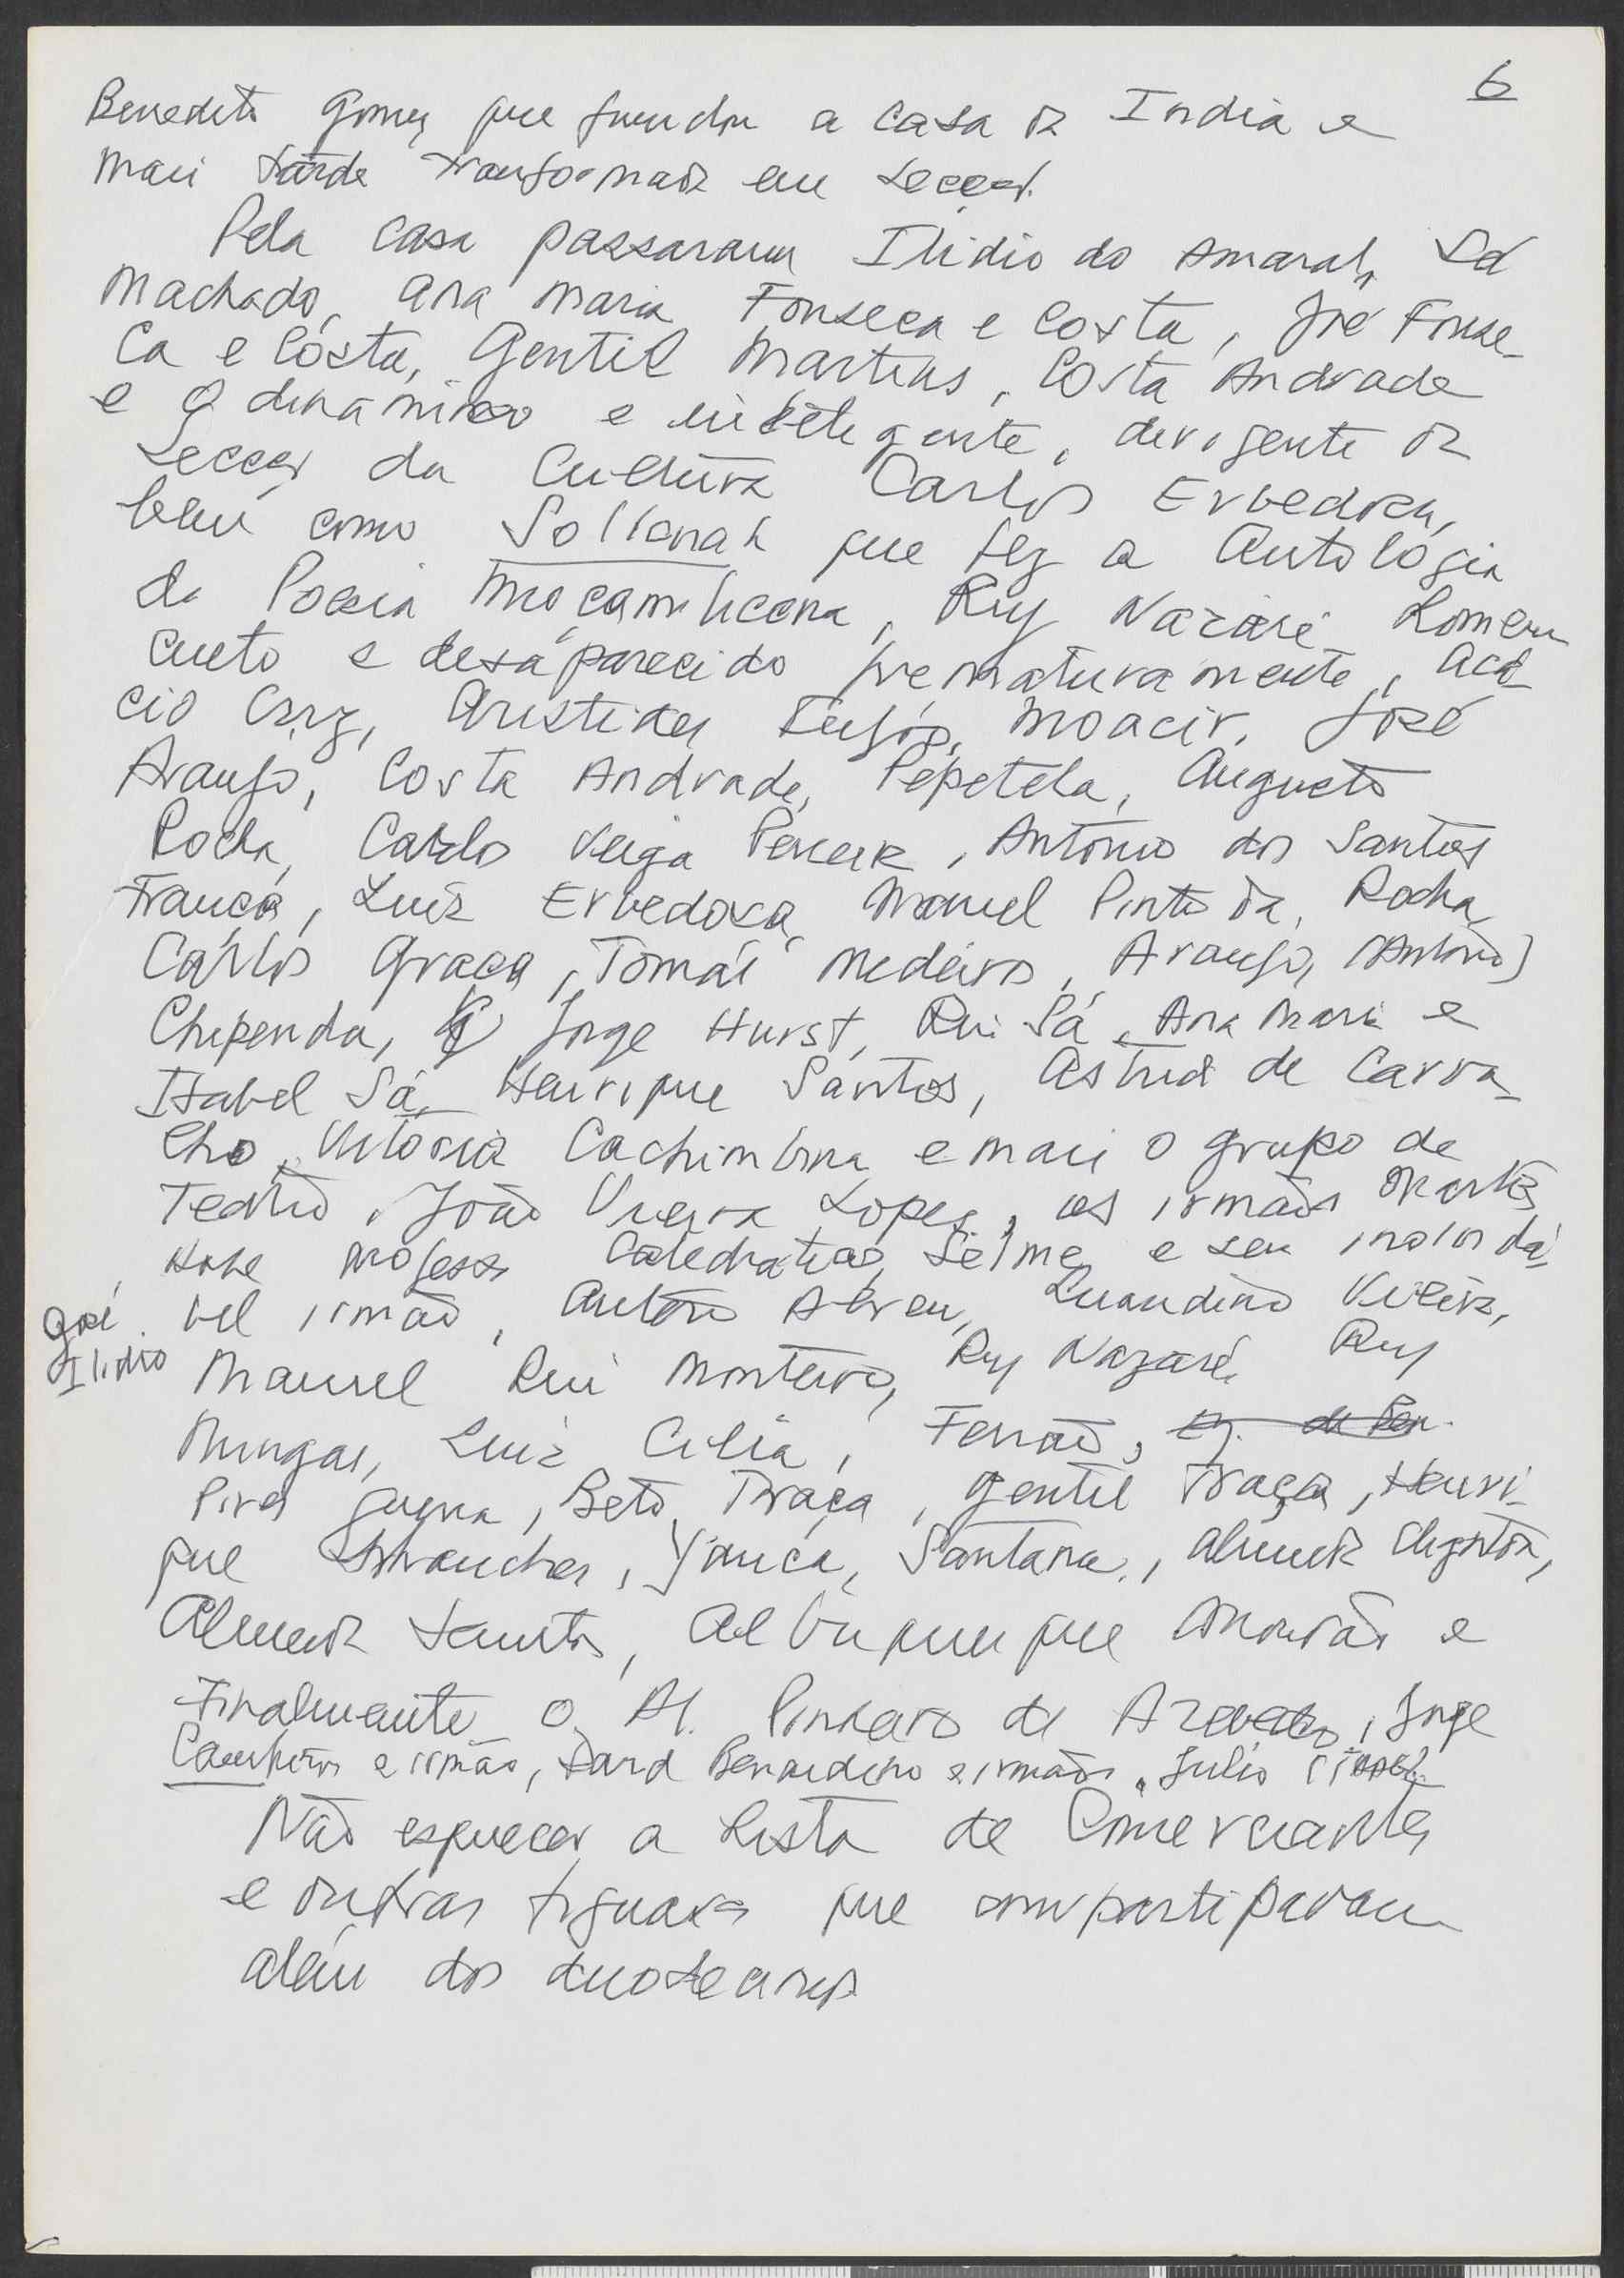 6
Benedito Gomes que fundou a casa da India e
mais tarde transformada em Secção.
Pela casa passaram Ilidio do Amaral, Sá
Machado, Ana Maria Fonseca e Costa, José Fonse-
ca e Costa, Gentil Martins, Costa Andrade
e o dinamico e inteligente, dirigente da
Secção da Cultura Carlos Ervedosa,
bem como que fez a Antologia
da Poesia Moçambicana, Ruy Nazaré Romeu
e desaparecido prematuramente, Acá-
cio Cruz, Aristides Moacir, José
Araujo, Costa Andrade, Pepetela, Augusto
Rocha, Carlos Veiga Pereira, António dos Santos
França, Luis Ervedosa, Manuel Pinto da Rocha,
Carlos Graça, Tomás Medeiros, Araujo, (António)
Chipenda, Jorge Hurst, Rui Sá, Ana Maria e
Isabel Sá, Henrique Santos, Astrid de Carva-
lho, Vitoria Cachimbina e mais o grupo de
Teatro, João Vieira Lopes, os irmãos
Hoje professor Catedratico, e seu inolvidá-
vel irmão, António Abreu, Luandino Vieira,
José Ilidio
Manuel Rui Monteiro, Ruy Nazaré, Ruy
Mingas, Luis Cilia, Ferrão,
Pires Guerra, Beto Traça, Gentil Traça, Henri-
que Abranches, Santana, Almeida
Almeida Santos, Albuquerque Mourão e
Finalmente o Al. Pinheiro de Azevedo, Jorge
Campinos e irmão, Bernardino e irmão, Julio
Não esquecer a Lista de Comerciantes
e outras figuras que compartiparam
além dos